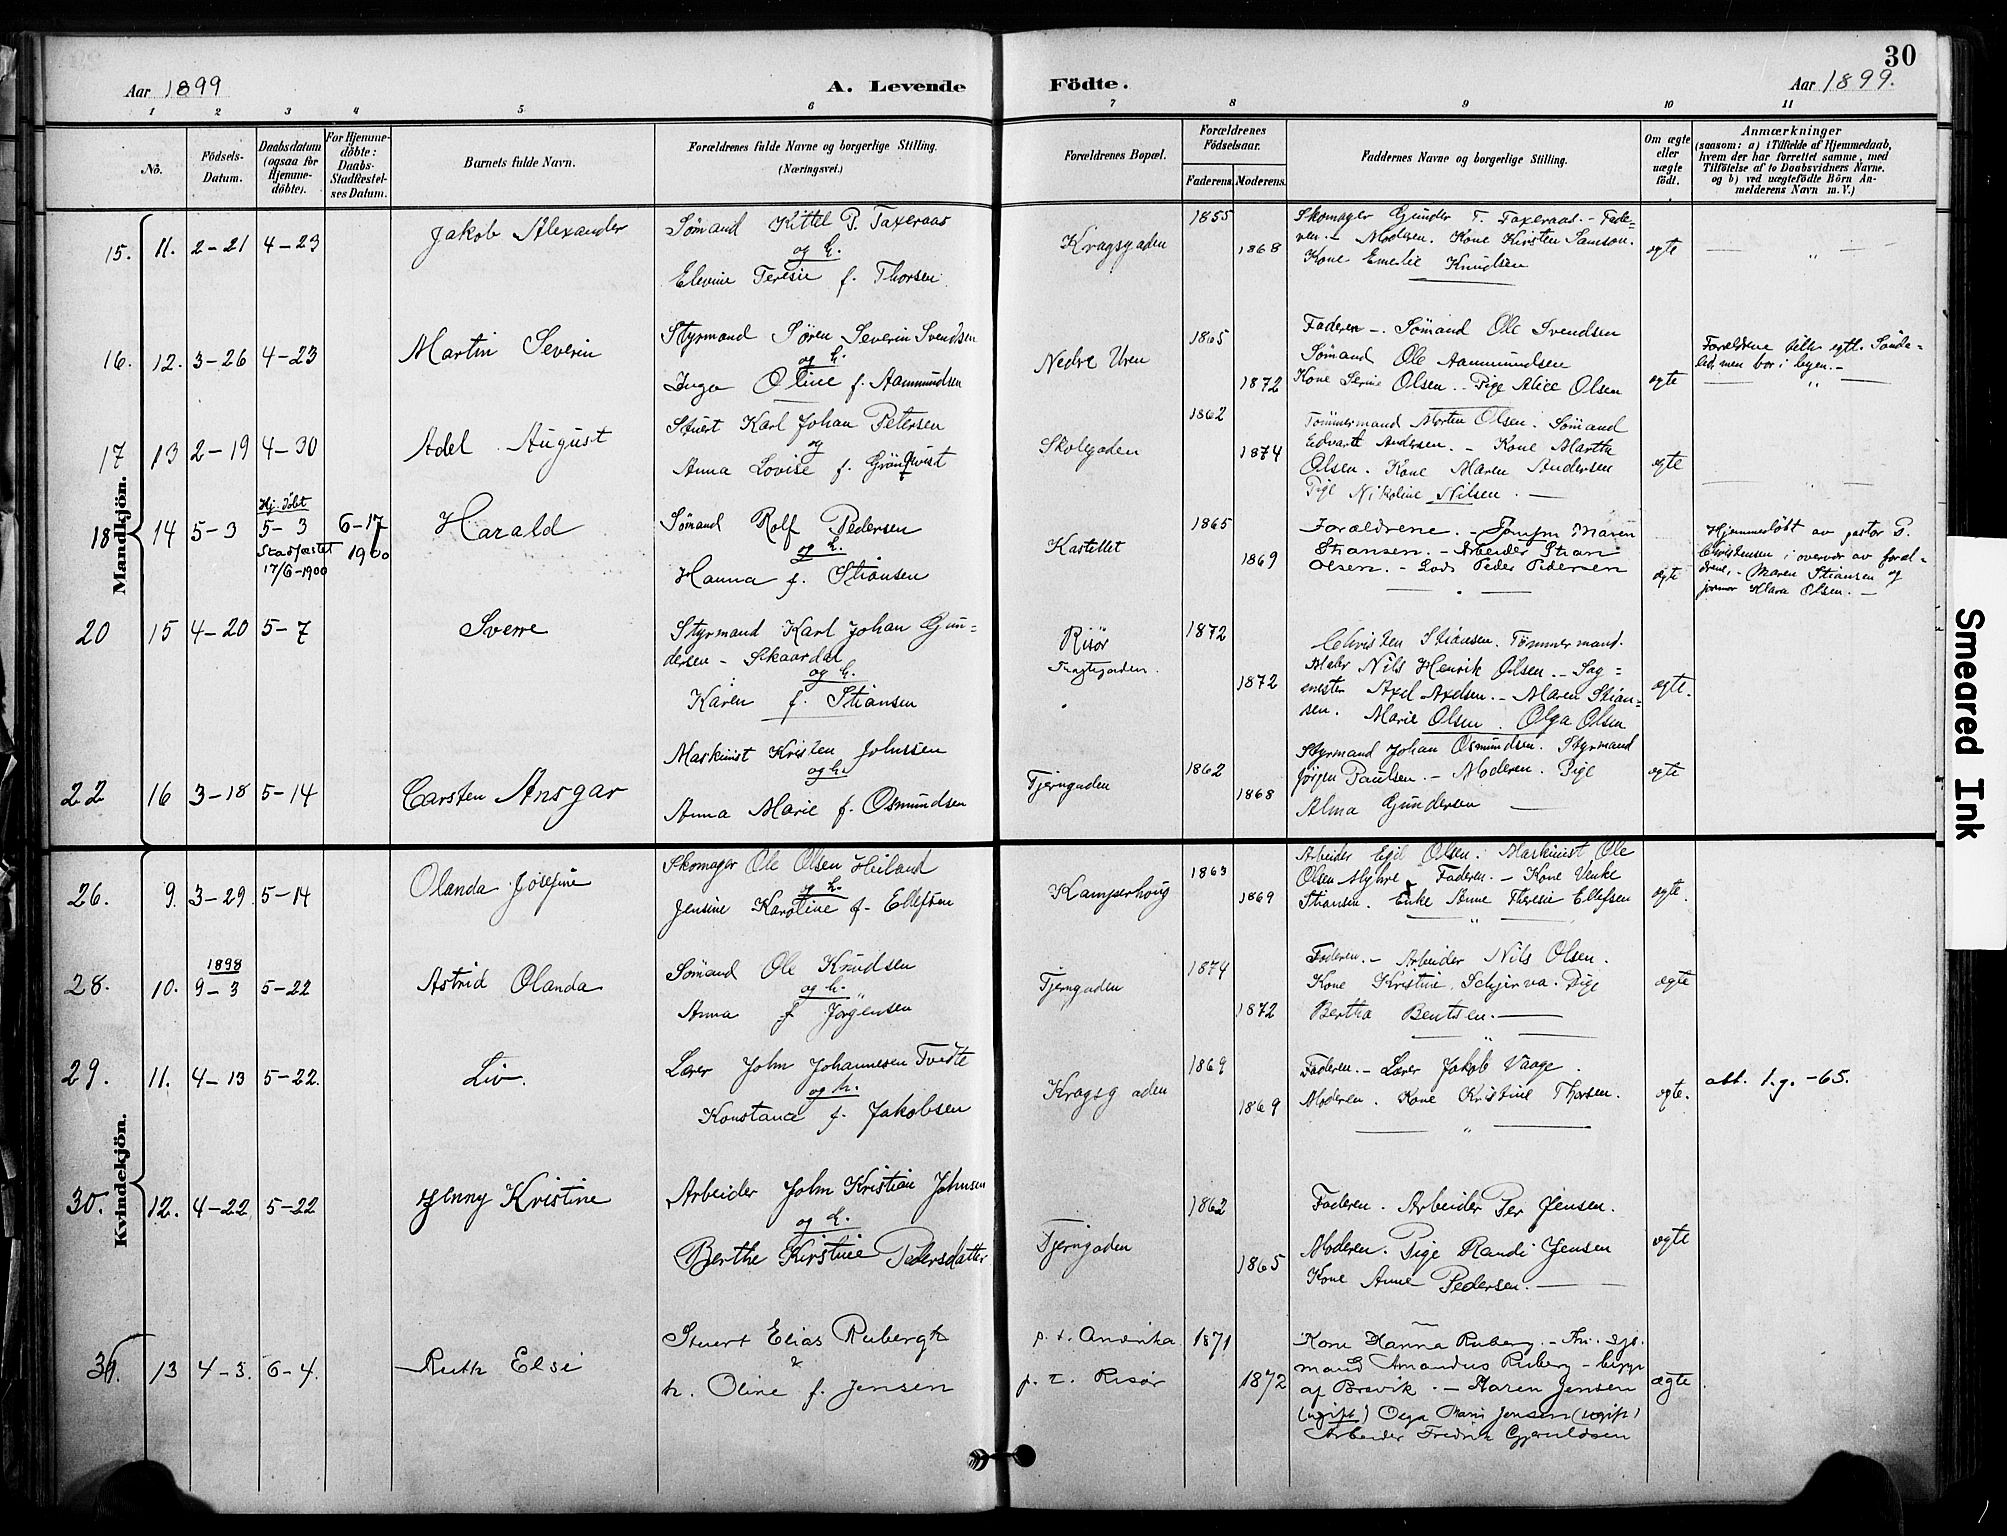 30
Aar 1899
A. Levende
Födte.
Aar 1899.
1 2 3 4 5 6 7 8 9 10 11
No.
Födsels-
Datum.
Daabsdatum
(ogsaa for
Hjemme-
döbte).
For Hjemme-
döbte:
Daabs-
Stadfæstel-
ses Datum.
Barnets fulde Navn.
Forældrenes fulde Navne og borgerlige Stilling.
(Næringsvei.)
Forældrenes Bopæl.
Forældrenes
Födselsaar.
Faderens. Moderens.
Faddernes Navne og borgerlige Stilling.
Om ægte
eller
uægte
födt.
Anmærkninger
(saasom: a) i Tilfælde af Hjemmedaab,
hvem der har forrettet samme, med
Tilföielse af to Daabsvidners Navne.
og b) ved uægtefödte Börn An-
melderens Navn m. V.)
Mandkjön.
15. 11. 2-21 4-23
Jakob Alexander
Sømand Kittel P. Taxeraas
og h.
Elevine Teresie f. Thorsen
Kragsgaden
1855
1868
Skomager Gunder T. Taxeraas. - Fade-
ren. - Moderen. Kone Kirsten Samson.
Kone Emelie Knudsen
ægte
16. 12. 3-26 4-23
Martin Severin
Styrmand Søren Severin Svendsen
og h.
Inga Oline f. Aamundsen
Nedre Uren
1865
1872
Faderen -. Sømand Ole Svendsen
Sømand Ole Aanmundsen
Kone Serine Olsen. - Pige Alice Olsen
ægte
Forældrene
men bor i byen. -
17 13 2-19 4-30
Adel August
Stuert Karl Johan Petersen
og
Anna Lovise f. Grönqwist
Skolegaden
1862
1874
Tömmermand Morten Olsen. Sømand
Edvardt Andersen. - Kone Martha
Olsen. Kone Maren Andersen
Pige Nikoline Nilsen. -
ægte
18 14 5-3
Hj. döbt
5-3
Stadfæstet
17/6-1900
6-17
1900
Harald
Sømand Rolf Pedersen
og h.
Hanna f. Stiansen
Kastellet
1865
1869
Forældrene. - Jomfru Maren
Stiansen. - Arbeider Stian
Olsen. - Lods Peder Pedersen
ægte
Hjemmedöbt av pastor P.
Christensen i overvær av foræl-
drene, - Maren Stiansen og
jormor Klara Olsen. -
20 15 4-20 5-7
Sverre
Styrmand Karl Johan Gun-
dersen - Skaardal
og h.
Karen f. Stiansen
Risør
1872
1872
Christen Stiansen. Tömmermand.
Maler Nils Henrik Olsen. - Sag-
mester Axel Axelsen. - Maren Stian-
sen. Marie Olsen. Olga Olsen
ægte.
22 16 3-18 5-14
Carsten Ansgar
Maskinist Kristen Johnsen
og h.
Anna Marie f. Osmundsen
Tjerngaden
1862
1868
Styrmand Johan Osmundsen. Styrmand
Jörgen Paulsen. - Moderen. Pige
Alma Gundersen
ægte
Kvindekjön.
26. 9. 3-29. 5-14
Olanda Josefine
Skomager Ole Olsen Heiland
og h.
Jensine Karoline f. Ellefsen
Kamperhoug
1863
1869
Arbeider Egil Olsen. Maskinist Ole
Olsen Myhre. Faderen. - Kone Venke
Stiansen. Enke Anne Theresie Ellefsen
ægte.
28. 10.
1898
9-3 5-22
Astrid Olanda
Sømand Ole Knudsen
og h.
Anna f Jørgensen
Tjerngaden
1874
1872
Faderen. - Arbeider Nils Olsen.
Kone Kristine Schjerva. Pige
Bertha Bentsen. -
ægte
29. 11. 4-13 5-22.
Liv.
Lærer John Johannesen Tvedte
og h.
Konstance f. Jakobsen
Kragsgaden
1869
1869
Faderen. - Lærer Jakob Vaage.
Moderen. Kone Kristine Thorsen.
ægte.
att. 1.g. -65.
30. 12. 4-22 5-22
Jenny Kristine
Arbeider John Kristian Johnsen
og h.
Berthe Kirstine Pedersdatter
Tjerngaden
1862
1865
Faderen. Arbeider Per Jensen.
Moderen. Pige Randi Jensen
Kone Anne Pedersen. -
ægte
13 4-3. 6-4.
Ruth Elsi
Stuert Elias Rubergh
&
h. Oline f. Jensen
p. t. Amerika
p. t. Risør
1871
1872
Kone Hanna Ruberg. -
mand Amandus Ruberg -
af Brevik. - Karen Jensen
(ugift) Olga Marie Jensen (ugift)
Arbeider Fredrik Gjeruldsen
ægte
Smeared Ink